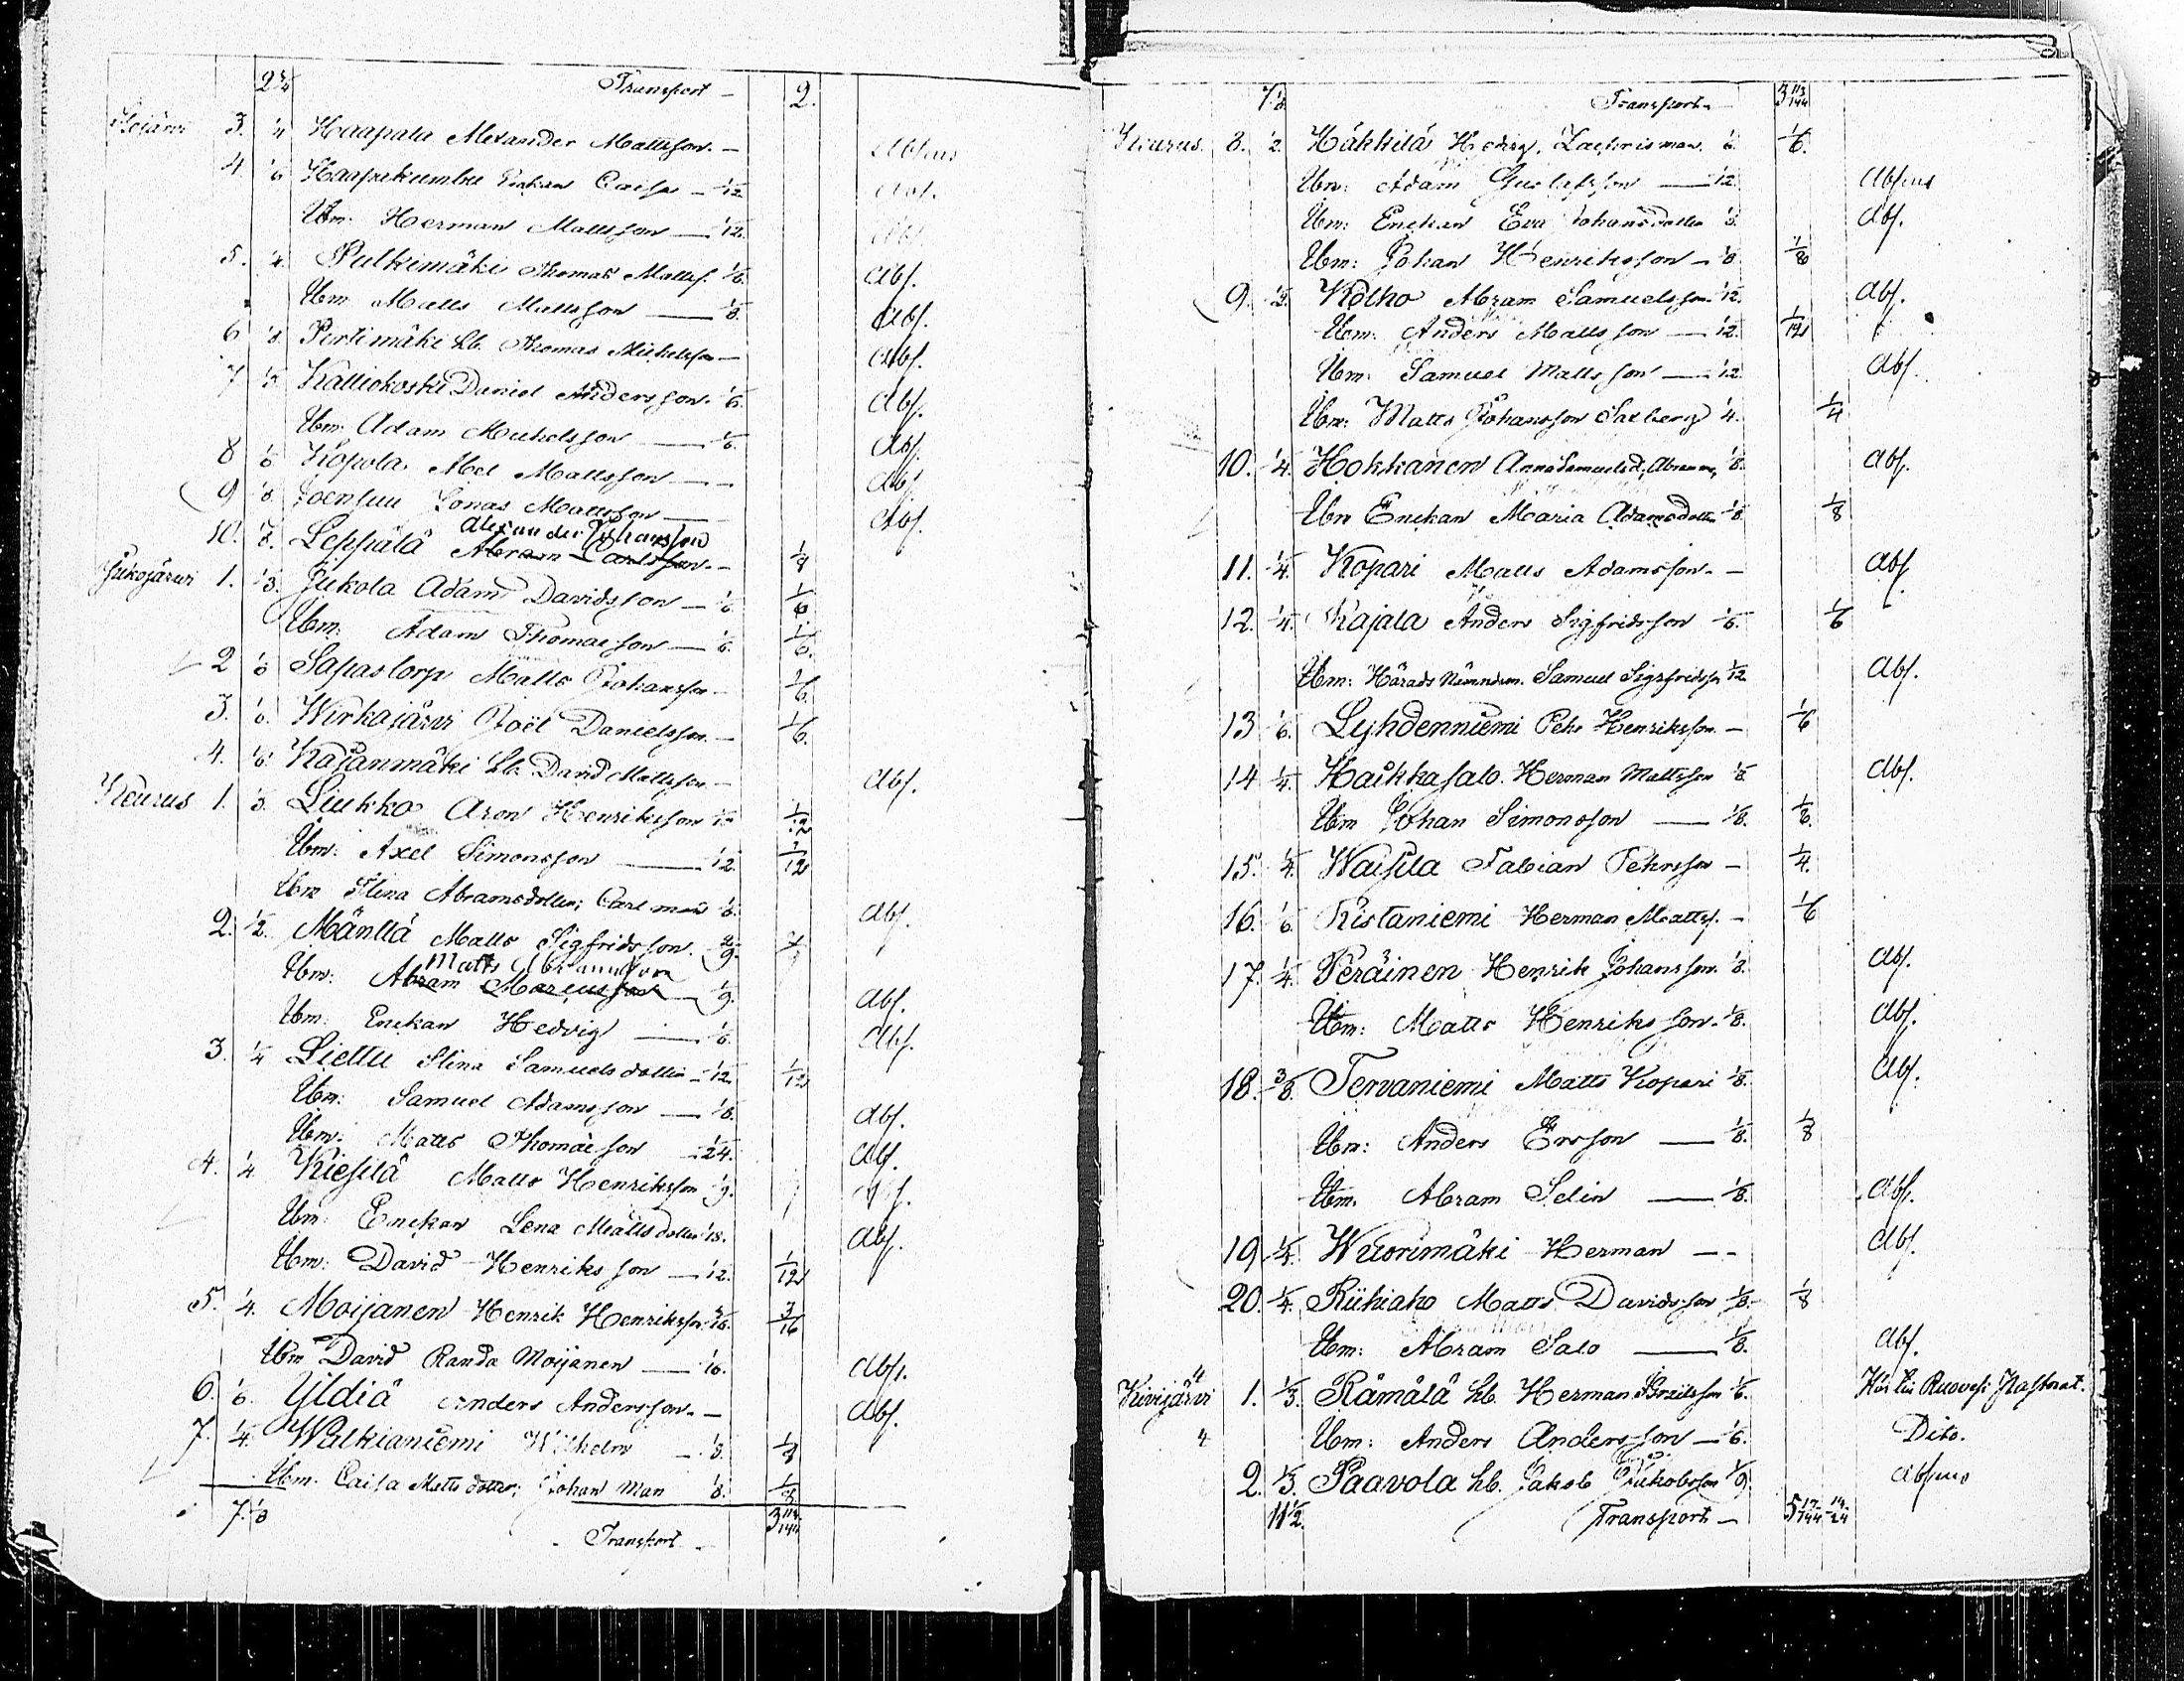 2 3/4 Transport - 2.
3. 1/4 Haapala Alexander Mattsson. - Absens
4. 1/6 Haapakumbu Enkan Caisa - 1/12 Abs.
Ibm. Herman Mattsson - 1/12. Abs.
5. 1/4. Pulkimäki Thomas Matts. 1/8. Abs.
Ibm Matts Mattsson - 1/8. Abs.
6 1/8. Pertimäki Lb. Thomas Michelsson - Abs.
7 1/3. Kalliokoski Daniel Andersson. 1/6. Abs.
Ibm. Adam Michelsson - 1/6. Abs.
8 1/6 Kopola Abel Mattsson - Abs.
9 1/8. Joensuu Jonas Mattsson - Abs.
Alexander Johansson
10. 1/8. Leppälä Abram Carlsson. - 1/8
Jukojärwi 1. 1/3. Jukola Adam Davidsson - 1/6 1/6
Ibm: Adam Thomasson - 1/6. 1/6.
2 1/6 Sapastorp Matts Johansson - 1/6.
3. 1/6. Wirkajärvi Joël Danielsson. - 1/6.
4. 1/6. Kajanmäki Lb. David Mattsson - Abs.
Keurus 1. 1/3. Liukko Aron Henriksson 1/12 1/12
Ibm: Axel Simonsson - 1/12. 1/12
Ibm Stina Abramsdotter; Carl man 1/6. Abs.
2. 1/2. Mänttä Matts Sigfridsson. 2/9.
Matts Abramsson
Ibm: Abram Marcusson 1/9. Abs.
Ibm. Enckan Hedvig - 1/6. Abs.
3. 1/4 Liettu Stina Samuelsdotter - 1/12 1/12
Ibm: Samuel Adamsson - 1/8. Abs.
Ibm: Matts Thomasson - 1/24. Abs.
4. 1/4 Kiesilä Matts Henriksson 1/9. Abs.
Ibm: Enckan Lena Mattsdotter 1/18. Abs.
Ibm: David Henriksson - 1/12. 1/12
5. 1/4. Moijanen Henrik Henriksson 3/16. 3/16
Ibm David Randa Moijanen - 1/16. Abs.
6. 1/6. Yldiä Anders Andersson. - Abs.
7. 1/4. Walkianiemi Wilhelm - 1/8. 1/8
Ibm. Caisa Mattsdotter; Johan Man 1/8. 1/8
7. 1/8 Transport - 3 113/144
7. 1/8 Transport - 3 113/144
Keurus 8. 1/2. Häkkilä Hedvig, Zachris man. 1/6. 1/6.
Ibm: Adam Gustafsson - 1/12. Absens
Ibm: Enckan Eva Johansdotter 1/8. Abs.
Ibm: Johan Henriksson - 1/8 1/8
9. 1/2. Kolho Abram Samuelsson 1/12. Abs.
Ibm: Anders Mattsson - 1/12. 1/12
Ibm: Samuel Mattsson - 1/12. Abs.
Ibm: Matts Johansson Salberg 1/4. 1/4
10. 1/4. Hokkanen Anna Samuelsd, Abram m, 1/8. Abs.
Ibm Enckan Maria Adamsdotter 1/8 1/8
11. 1/4. Kopari Matts Adamsson. - Abs.
12. 1/4. Kajala Anders Sigfridsson 1/6. 1/6
Ibm: Härads Nämndem. Samuel Sigfridsson 1/12 Abs.
13 1/6. Lyhdenniemi Pehr Henriksson. - 1/6
14 1/4. Haikkasalo. Herman Mattsson 1/8 Abs.
Ibm Johan Simonsson - 1/8. 1/8.
15. 1/4. Waisila Fabian Pehrsson - 1/4.
16. 1/6. Ristaniemi Herman Mattss. - 1/6
17. 1/4. Peräinen Henrik Johansson. 1/8. Abs.
Ibm: Matts Henriksson. 1/8. Abs.
18. 3/8. Tervaniemi Matts Kopari 1/8. Abs.
Ibm: Anders Ersson - 1/8. 1/8
Ibm. Abram Selin - 1/8. Abs.
19. 1/4. Wuorimäki Herman - Abs.
20. 1/4. Riihiaho Matts Davidsson 1/8. 1/8
Ibm: Abram Salo - 1/8. Abs.
Kivijärvi 1. 1/3. Rämälä Lb. Herman 1/6. Hör till Ruovesi Pastorat.
4 Ibm: Anders Andersson - 1/6. Dito.
2. 1/3. Paavola Lb. Jakob Jakobsson 1/9. Absens
11 1/2. Transport - 5 17/144 14/24